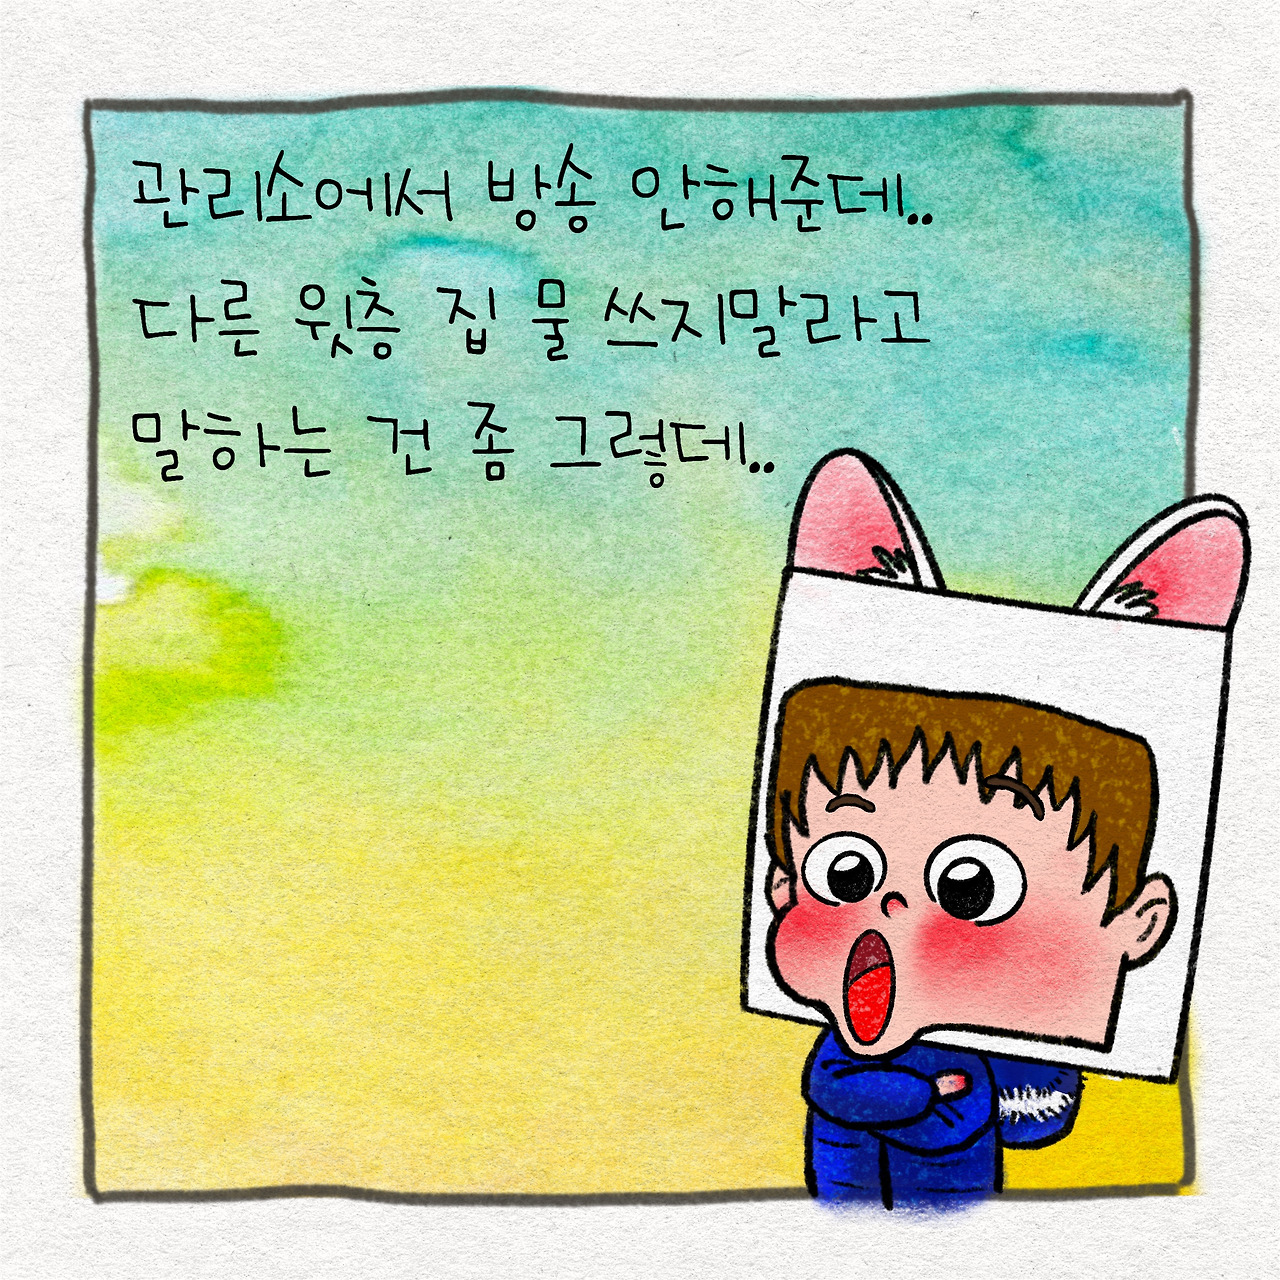 관리소에서 방송 안해준데..
다른 윗층 집 물 쓰지말라고
말하는 건 좀 그렇데..